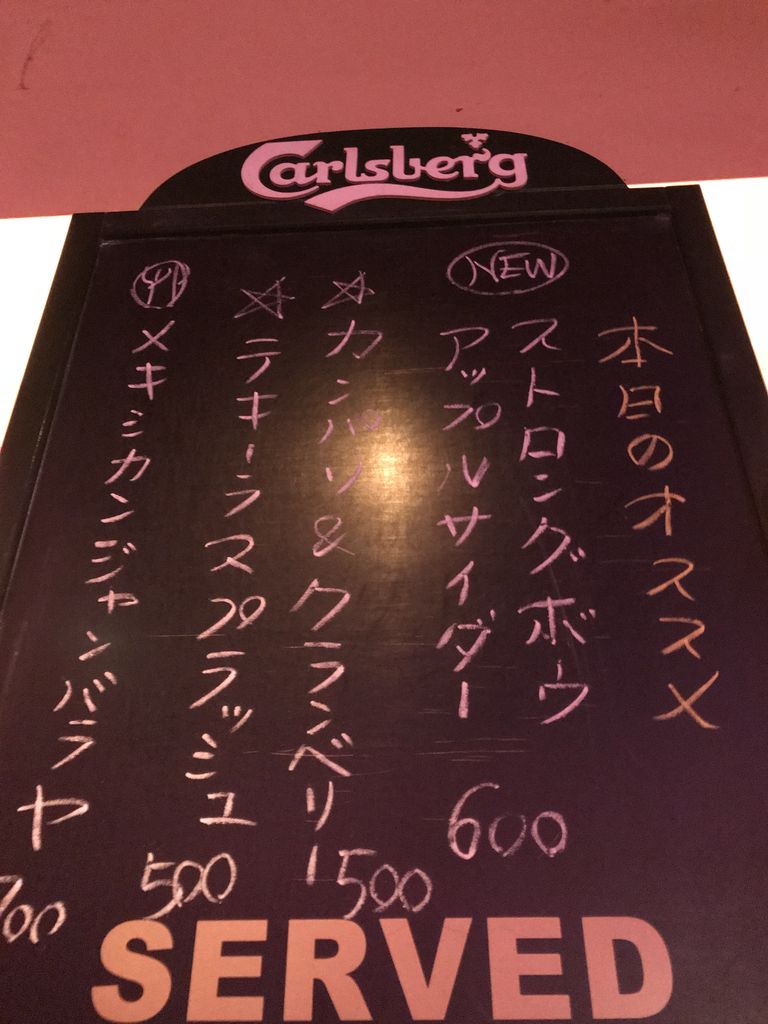 Carlsberg
本日のオススメ
NEW
ストロングボウ
アップルサイダー
600
カンパリ&クランベリー
500
テキーラスプラッシュ
500
メキシカンジャンバラヤ
700
SERVED